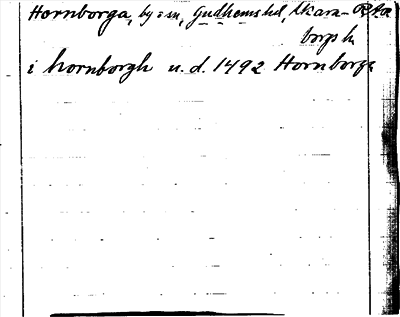 Hornborga, by o sn, Gudhems hd, Skara-
borgs l.
i hornborgh u.d. 1492 Hornborga